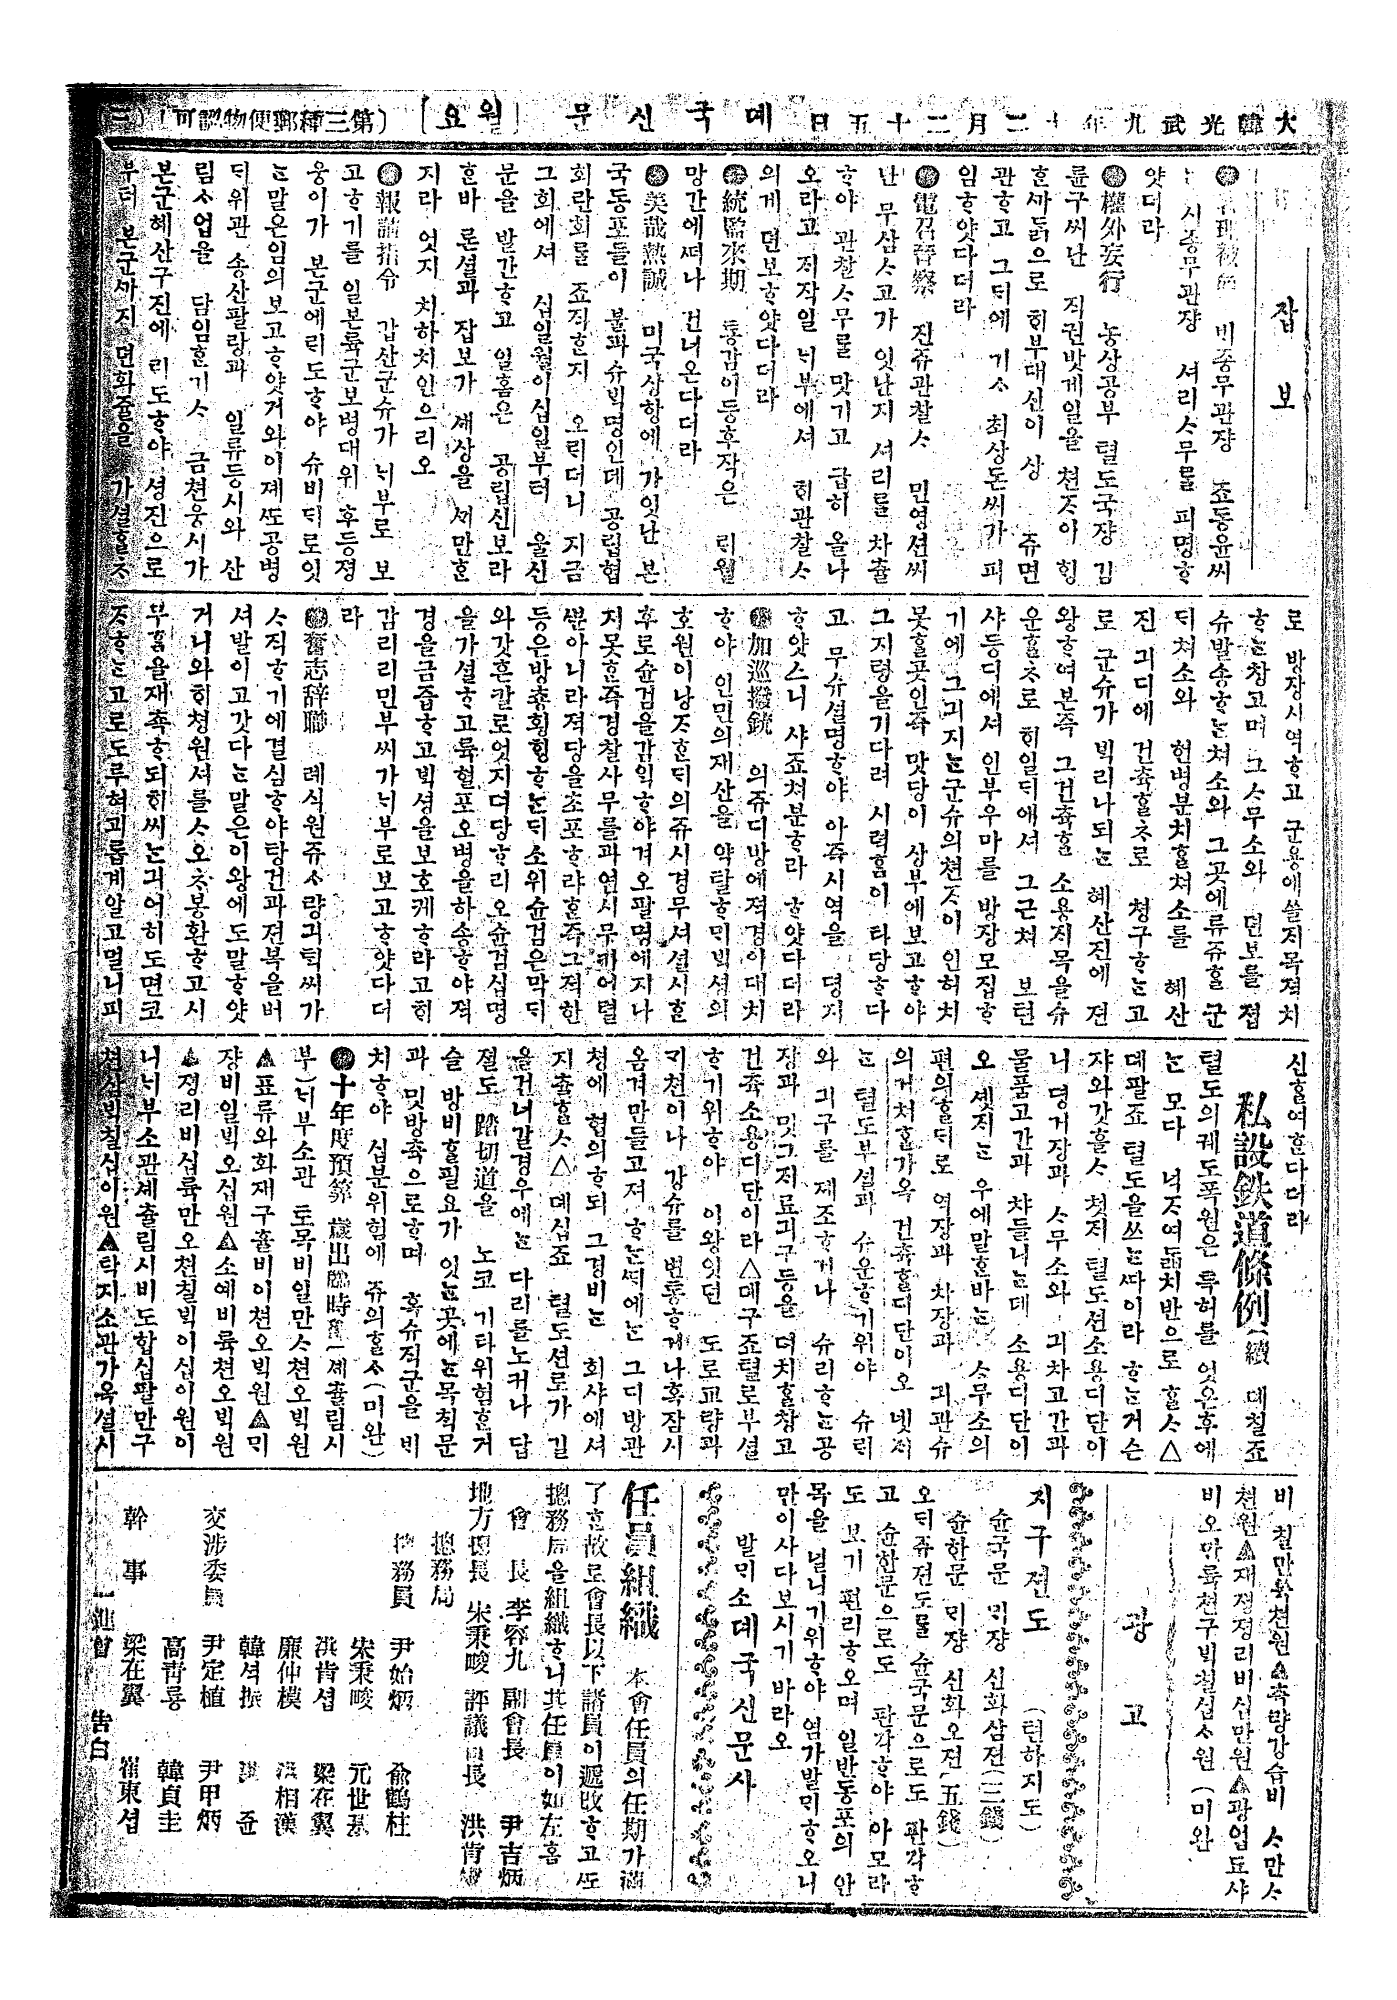 大韓光武九年十二月二十五日 뎨국신문 [월요] (第三種郵便物認可)
잡보
비종무관쟝 죠동윤씨
시종무관쟝 셔리ᄉᆞ무를 피명ᄒᆞ
얏더라
權外妄行 농상공부 텰도국쟝 김
륜구씨난 직권밧게일을 쳔ᄌᆞ이 ᄒᆡᆼ
ᄒᆞᆫᄭᅡᄃᆞᆰ으로 ᄒᆡ부대신이 상 쥬면
관ᄒᆞ고 그ᄃᆡ에 기ᄉᆞ 최상돈씨가 피
임ᄒᆞ얏다더라
電召晉察 진쥬관찰ᄉᆞ 민영션씨
난 무삼ᄉᆞ고가 잇난지 셔리를 차츌
ᄒᆞ야 관찰ᄉᆞ무를 맛기고 급히 올나
오라고 ᄌᆡ작일 ᄂᆡ부에셔 ᄒᆡ관찰ᄉᆞ
의게 뎐보ᄒᆞ얏다더라
統監來期 통감이등후작은 ᄅᆡ월
망간에ᄯᅥ나 건너온다더라
美哉熱誠 미국상항에 가잇난 본
국동포들이 불과슈ᄇᆡᆨ명인데 공립협
회란회를 죠직ᄒᆞᆫ지 오ᄅᆡ더니 지금
그회에셔 십일월이십일부터 울신
문을 발간ᄒᆞ고 일홈은 공립신보라
ᄒᆞᆫ바 론셜과 잡보가 셰상을 ᄭᆡ만ᄒᆞᆫ
지라 엇지 치하치안으리오
報請指令 갑산군슈가 ᄂᆡ부로 보
고ᄒᆞ기를 일본륙군보병대위 후등졍
웅이가 본군에ᄅᆡ도ᄒᆞ야 슈비ᄃᆡ로잇
는말온임의보고ᄒᆞ얏거와이졔ᄯᅩ공병
ᄃᆡ위관 송산팔랑과 일류등시와 산
림ᄉᆞ업을 담임ᄒᆞᆫ기ᄉᆞ 금쳔웅시가
본군혜산구진에 ᄅᆡ도ᄒᆞ야 셩진으로
부터 본군ᄭᅡ지 뎐화쥴을 가셜ᄒᆞᆯᄎᆞ
로 방쟝시역ᄒᆞ고 군용에쓸ᄌᆡ목젹치
ᄒᆞ는창고며 그ᄉᆞ무소와 뎐보를 졉
슈발송ᄒᆞ는쳐소와 그곳에류쥬ᄒᆞᆯ 군
ᄃᆡ쳐소와 헌병분치ᄒᆞᆯ쳐소를 혜산
진 긔디에 건츅ᄒᆞᆯᄎᆞ로 쳥구ᄒᆞ는고
로 군슈가 ᄇᆡᆨ리나되는 혜산진에 젼
왕ᄒᆞ여본즉 그건츅ᄒᆞᆯ 소용ᄌᆡ목을슈
운ᄒᆞᆯᄎᆞ로 ᄒᆡ일ᄃᆡ애셔 그근쳐 보텬
샤등디에셔 인부우마를 방쟝모집ᄒᆞ
기에 그긔지는군슈의쳔ᄌᆞ이 인허치
못ᄒᆞᆯ곳인즉 맛당이 상부에보고ᄒᆞ야
그지령을기다려 시력홈이 타당ᄒᆞ다
고 무슈셜명ᄒᆞ야 아즉시역을 뎡지
ᄒᆞ얏스니 샤죠쳐분ᄒᆞ라 ᄒᆞ얏다더라
加巡撥銃 의쥬디방에젹경이대치
ᄒᆞ야 인민의재산을 약탈ᄒᆞᄆᆡᄇᆡᆨ셩의
호원이낭ᄌᆞᄒᆞᆫᄃᆡ의쥬시경무셔셜시ᄒᆞᆫ
후로슌검을감익ᄒᆞ야겨오팔명에지나
지못ᄒᆞᆫ즉경찰사무를과연시무키어렵
ᄲᅮᆫ아니라젹당을초포ᄒᆞ랴ᄒᆞᆫ즉그젹한
등은방춍횡ᄒᆡᆼᄒᆞ는ᄃᆡ소위슌검은막ᄃᆡ
와갓흔칼로엇지뎌당ᄒᆞ리오슌검십명
을가셜ᄒᆞ고륙혈포오병을하송ᄒᆞ야젹
경을금즙ᄒᆞ고ᄇᆡᆨ셩을보호케ᄒᆞ라고ᄒᆡ
감리리민부씨가ᄂᆡ부로보고ᄒᆞ얏다더
라
奮志辞職 례식원쥬ᄉᆞ량긔탁씨가
ᄉᆞ직ᄒᆞ기에결심ᄒᆞ야탕건과젼복을버
셔발이고갓다는말은이왕에도말ᄒᆞ얏
거니와ᄒᆡ쳥원셔를ᄉᆞ오ᄎᆞ봉환ᄒᆞ고시
무홈을재쵹ᄒᆞ되ᄒᆡ씨는긔어히도면코
ᄌᆞᄒᆞ는고로도루혀괴롭게알고멀니피
신ᄒᆞᆯ여ᄒᆞᆫ다더라
私設鉄道條例(續 뎨칠죠
텰도의궤도폭원은 특허를 엇은후에
는 모다 넉ᄌᆞ여듧치반으로 ᄒᆞᆯᄉᆞ△
뎨팔죠 텰도을쓰는ᄯᅡ이라 ᄒᆞ는거슨
쟈와갓ᄒᆞᆯᄉᆞ 쳣ᄌᆡ 텰도션소용디단이
니 뎡거쟝과 ᄉᆞ무소와 긔차고간과
물품고간과 챠들니는데 소용디단이
오 셋ᄌᆡ는 우에말ᄒᆞᆫ바는 ᄉᆞ무소의
편의ᄒᆞᆯᄃᆡ로 역쟝과 차쟝과 긔관슈
의거쳐ᄒᆞᆯ가옥 건츅ᄒᆞᆯ디단이오 넷ᄌᆡ
는 텰도부셜과 슈운ᄒᆞ기위ᄒᆞ야 슈ᄅᆡ
와 긔구를 졔조ᄒᆞ거나 슈리ᄒᆞ는공
쟝과 밋그ᄌᆡ료긔구등을 뎌치ᄒᆞᆯ창고
건츅소용디단이라△뎨구죠텰로부셜
ᄒᆞ기위ᄒᆞ야 이왕잇던 도로교량과
ᄀᆡ쳔이나 강슈를 변통ᄒᆞ게나혹잠시
옴겨만들고져 ᄒᆞ는ᄯᅢ에는 그디방관
쳥에 협의ᄒᆞ되 그경비는 회샤에셔
지츌ᄒᆞᆯᄉᆞ△ 뎨십죠 텰도션로가 길
을건너갈경우에는 다리를노커나 답
졀도 踏切道을 노코 기타위험ᄒᆞᆫ거
슬 방비ᄒᆞᆯ필요가 잇는곳에는목ᄎᆡᆨ문
과 밋방츅으로ᄒᆞ며 혹슈직군을 비
치ᄒᆞ야 십분위험에 쥬의ᄒᆞᆯᄉᆞ(미완)
十年度預算 歲出臨時部(셰츌림시
부)ᄂᆡ부소관 토목비일만ᄉᆞ쳔오ᄇᆡᆨ원
▲표류와화재구휼비이쳔오ᄇᆡᆨ원▲ᄆᆡ
쟝비일ᄇᆡᆨ오십원▲소예비륙쳔오ᄇᆡᆨ원
▲졍리비십륙만오쳔칠ᄇᆡᆨ이십이원이
니ᄂᆡ부소관셰츌림시비도합십팔만구
쳔삼ᄇᆡᆨ칠십이원▲탁지소관가옥셜시
비 칠만륙쳔원▲측량강습비 ᄉᆞ만ᄉᆞ
쳔원▲재졍졍리비십만원▲광업됴샤
비오만륙쳔구ᄇᆡᆨ칠십ᄉᆞ원(미완
광고
지구젼도 (텬하지도)
슌국문 ᄆᆡ쟝 신화삼젼(三錢)
슌한문 ᄆᆡ쟝 신화오젼(五錢)
오ᄃᆡ쥬젼도를 슌국문으로도 판각ᄒᆞ
고 슌한문으로도 판각ᄒᆞ야 아모라
도 보기 편리ᄒᆞ오며 일반동포의 안
목을 널니기위ᄒᆞ야 염가발ᄆᆡᄒᆞ오니
만이사다보시기 바라오
발ᄆᆡ소뎨국신문사
任員組織 本會任員의任期가滿
了ᄒᆞᆫ故로會長以下諸員이遞改ᄒᆞ고ᄯᅩ
總務局을組織ᄒᆞ니其任員이如左홈
會長 李容九 副會長 尹吉炳
地方總長 宋秉畯 評議員長 洪肯燮
總務局
總務員 尹始炳 兪鶴柱
宋秉畯 元世基
洪肯섭 梁在翼
廉仲模 相漢
韓석振 준
交涉委員 尹定植 尹甲炳
高靑룡 韓貞圭
幹事 梁在翼 崔東섭
一進會 告白